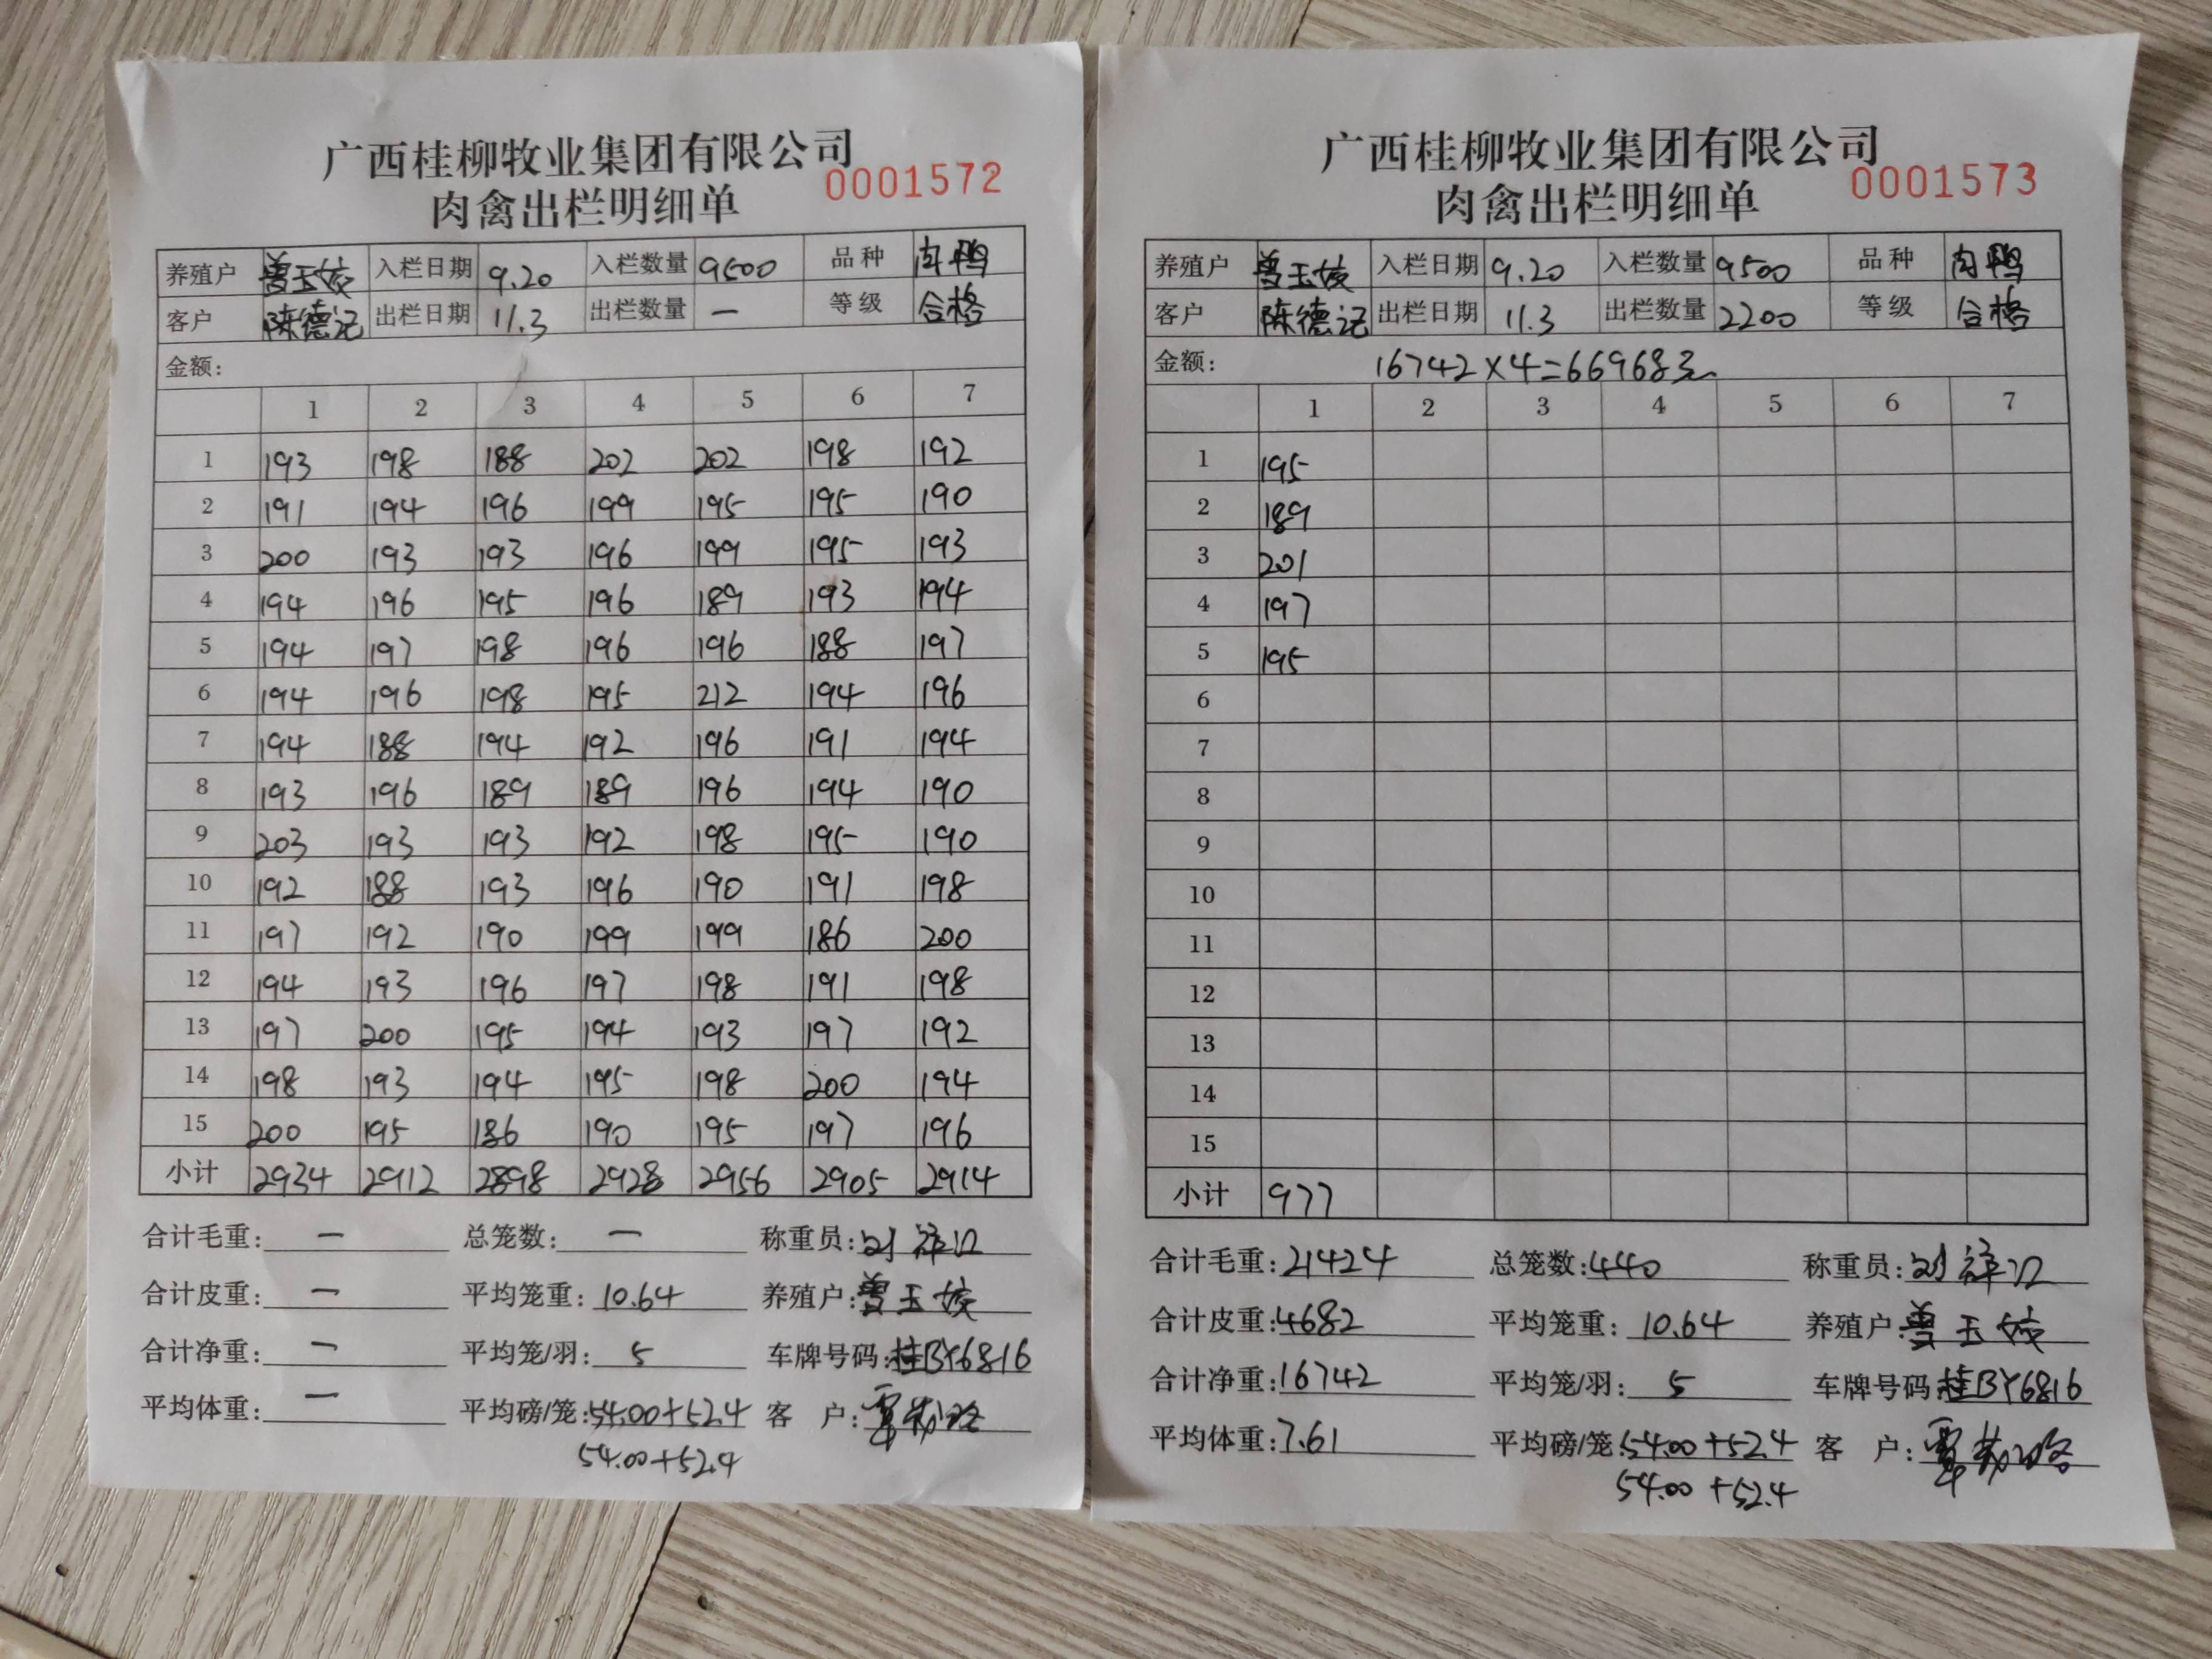 广西桂柳牧业集团有限公司
0001572
肉禽出栏明细单
养殖户 曾玉姣 入栏日期 9.20 入栏数量 9500 品种 肉鸭
客户 陈德记 出栏日期 11.3 出栏数量 — 等级 合格
金额:
1 2 3 4 5 6 7
1 193 198 188 202 202 198 192
2 191 194 196 199 195 195 190
3 200 193 193 196 199 195 193
4 194 196 195 196 189 193 194
5 194 197 198 196 196 188 197
6 194 196 198 195 212 194 196
7 194 188 194 192 196 191 194
8 193 196 189 189 196 194 190
9 203 193 193 192 198 195 190
10 192 188 193 196 190 191 198
11 197 192 190 199 199 186 200
12 194 193 196 197 198 191 198
13 197 200 195 194 193 197 192
14 198 193 194 195 198 200 194
15 200 195 186 190 195 197 196
小计 2934 2912 2898 2928 2956 2905 2914
合计毛重: — 总笼数: — 称重员:
合计皮重: — 平均笼重: 10.64 养殖户: 曾玉姣
合计净重: — 平均笼/羽: 5 车牌号码: 桂BY6816
平均体重: — 平均磅/笼: 54.00+52.4 客户:
54.00+52.4
广西桂柳牧业集团有限公司
0001573
肉禽出栏明细单
养殖户 曾玉姣 入栏日期 9.20 入栏数量 9500 品种 肉鸭
客户 陈德记 出栏日期 11.3 出栏数量 2200 等级 合格
金额: 16742×4=66968元
1 2 3 4 5 6 7
1 195
2 189
3 201
4 197
5 195
6
7
8
9
10
11
12
13
14
15
小计 977
合计毛重: 21424 总笼数: 440 称重员:
合计皮重: 4682 平均笼重: 10.64 养殖户: 曾玉姣
合计净重: 16742 平均笼/羽: 5 车牌号码: 桂BY6816
平均体重: 7.61 平均磅/笼: 54.00+52.4 客户:
54.00+52.4